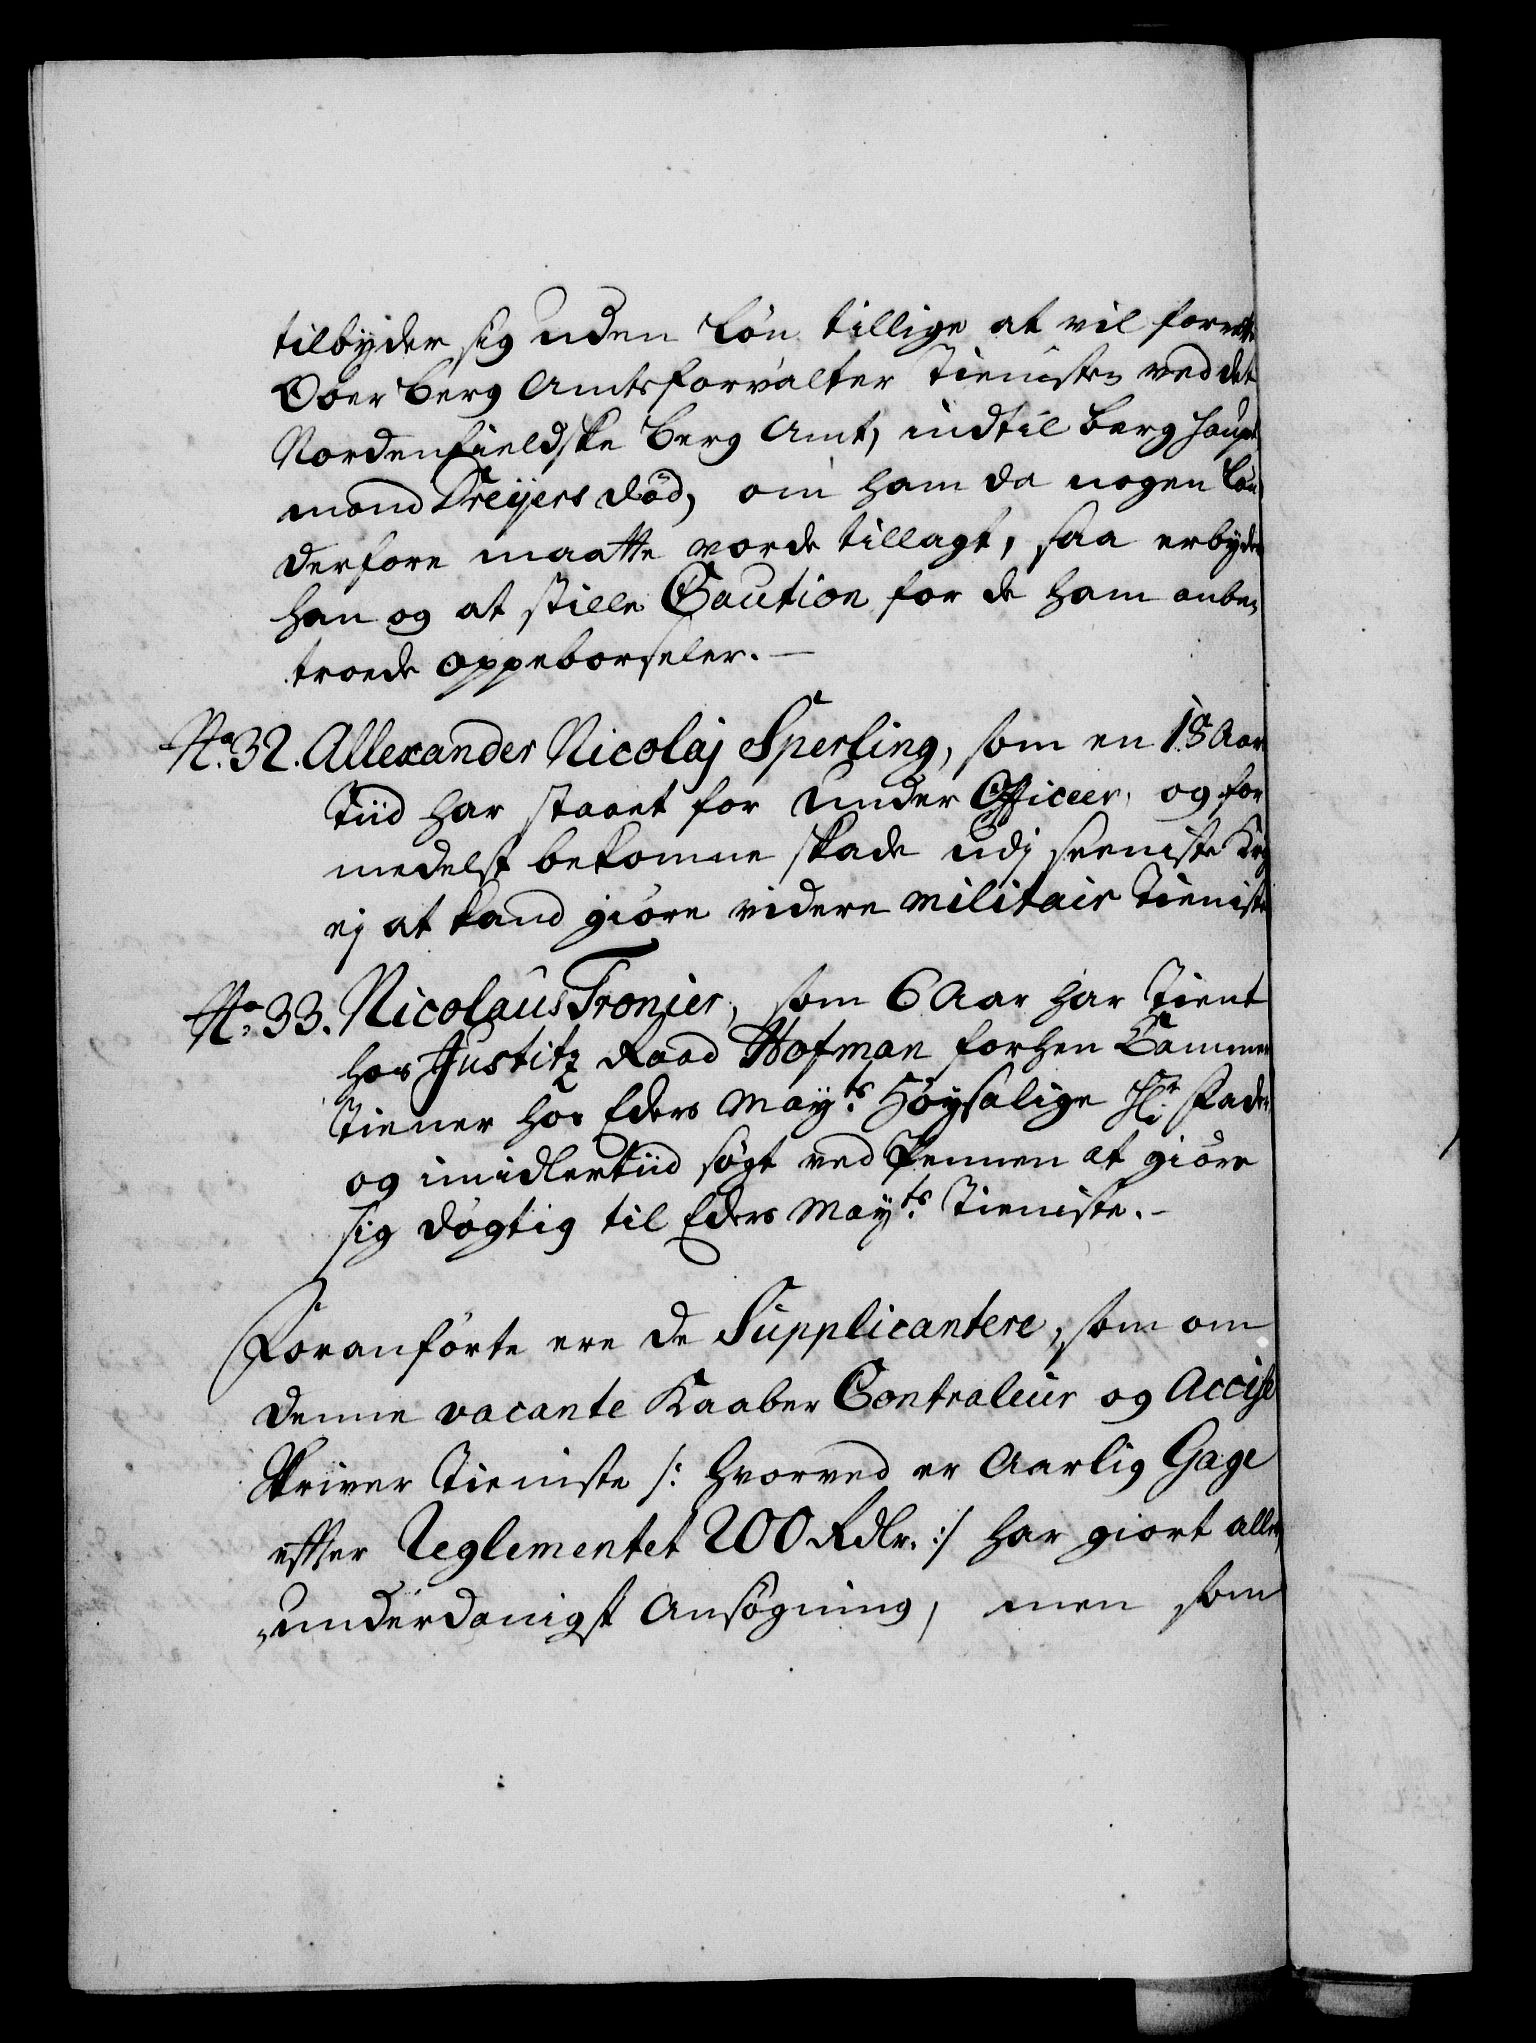 tilbyder sig uden Løn tillige at vil forrette
Ober Berg Amtsforvalter Tienisten ved det
Nordenfieldske Berg Amt, indtil Berg Haupt
mand Dreÿers død, om ham da nogen Løn
derfore maatte vorde tillagt, saa erbyder
han og at stille Caution for de ham anbe,
troede oppebørseler. —
No. 32. Allexander Nicolaj Sperling, som en 18 Aar
Tiid har staaet for Under Officeer, og for
medelst bekomne skade udj seeniste Krig
ej at kand giøre videre militair Tieniste
No. 33. Nicolaus Tronier, som 6 Aar har Tient
hos Justitz Raad Hofman forhen Cammer
Tiener hos Eders Mayts. Høysalige Hr. Fader
og imidlertiid søgt ved Pennen at giøre
sig døgtig til Eders Mayts. Tieniste. –
Foranførte ere de Supplicantere, som om
denne vacante Kaaber Contraleur og Accise
Skriver Tieniste /: hvorved er Aarlig Gage
effter Reglementet 200 Rdlr. :/ har giort aller,
underdanigst Ansøgning, men som